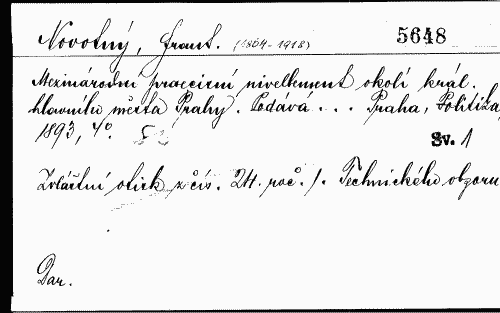 Novotný, Frant. (1864-1918) 5648
Mezinárodní praecisní nivellement okolí král.
hlavního města Prahy. Podává . . . Praha, Politika
1893, 4°.
Sv. 1
Zvláštní otisk z čís. 24. roč. I. Technického obzoru
Dar.